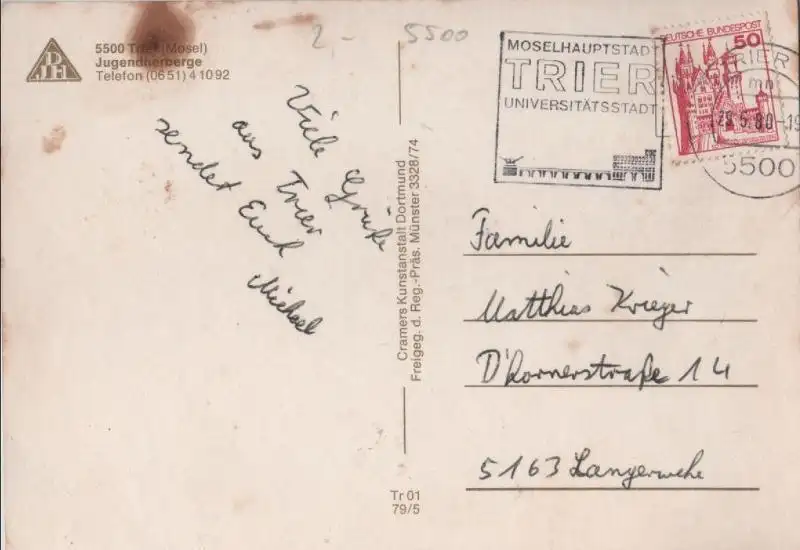 2 - 5500
5500 Trier (Mosel)
Jugendherberge
Telefon (0651) 41092
DJH
Viele Grüße
aus Trier
sendet Euch
Michael
Cramers Kunstanstalt Dortmund
Freigeg. d. Reg.-Präs. Münster 3328/74
Tr 01
79/5
MOSELHAUPTSTADT
TRIER
UNIVERSITÄTSSTADT
DEUTSCHE BUNDESPOST
50
TRIER
mn
29.5.80-19
5500
Familie
Matthias Krieger
D'hornerstraße 14
5163 Langerwehe